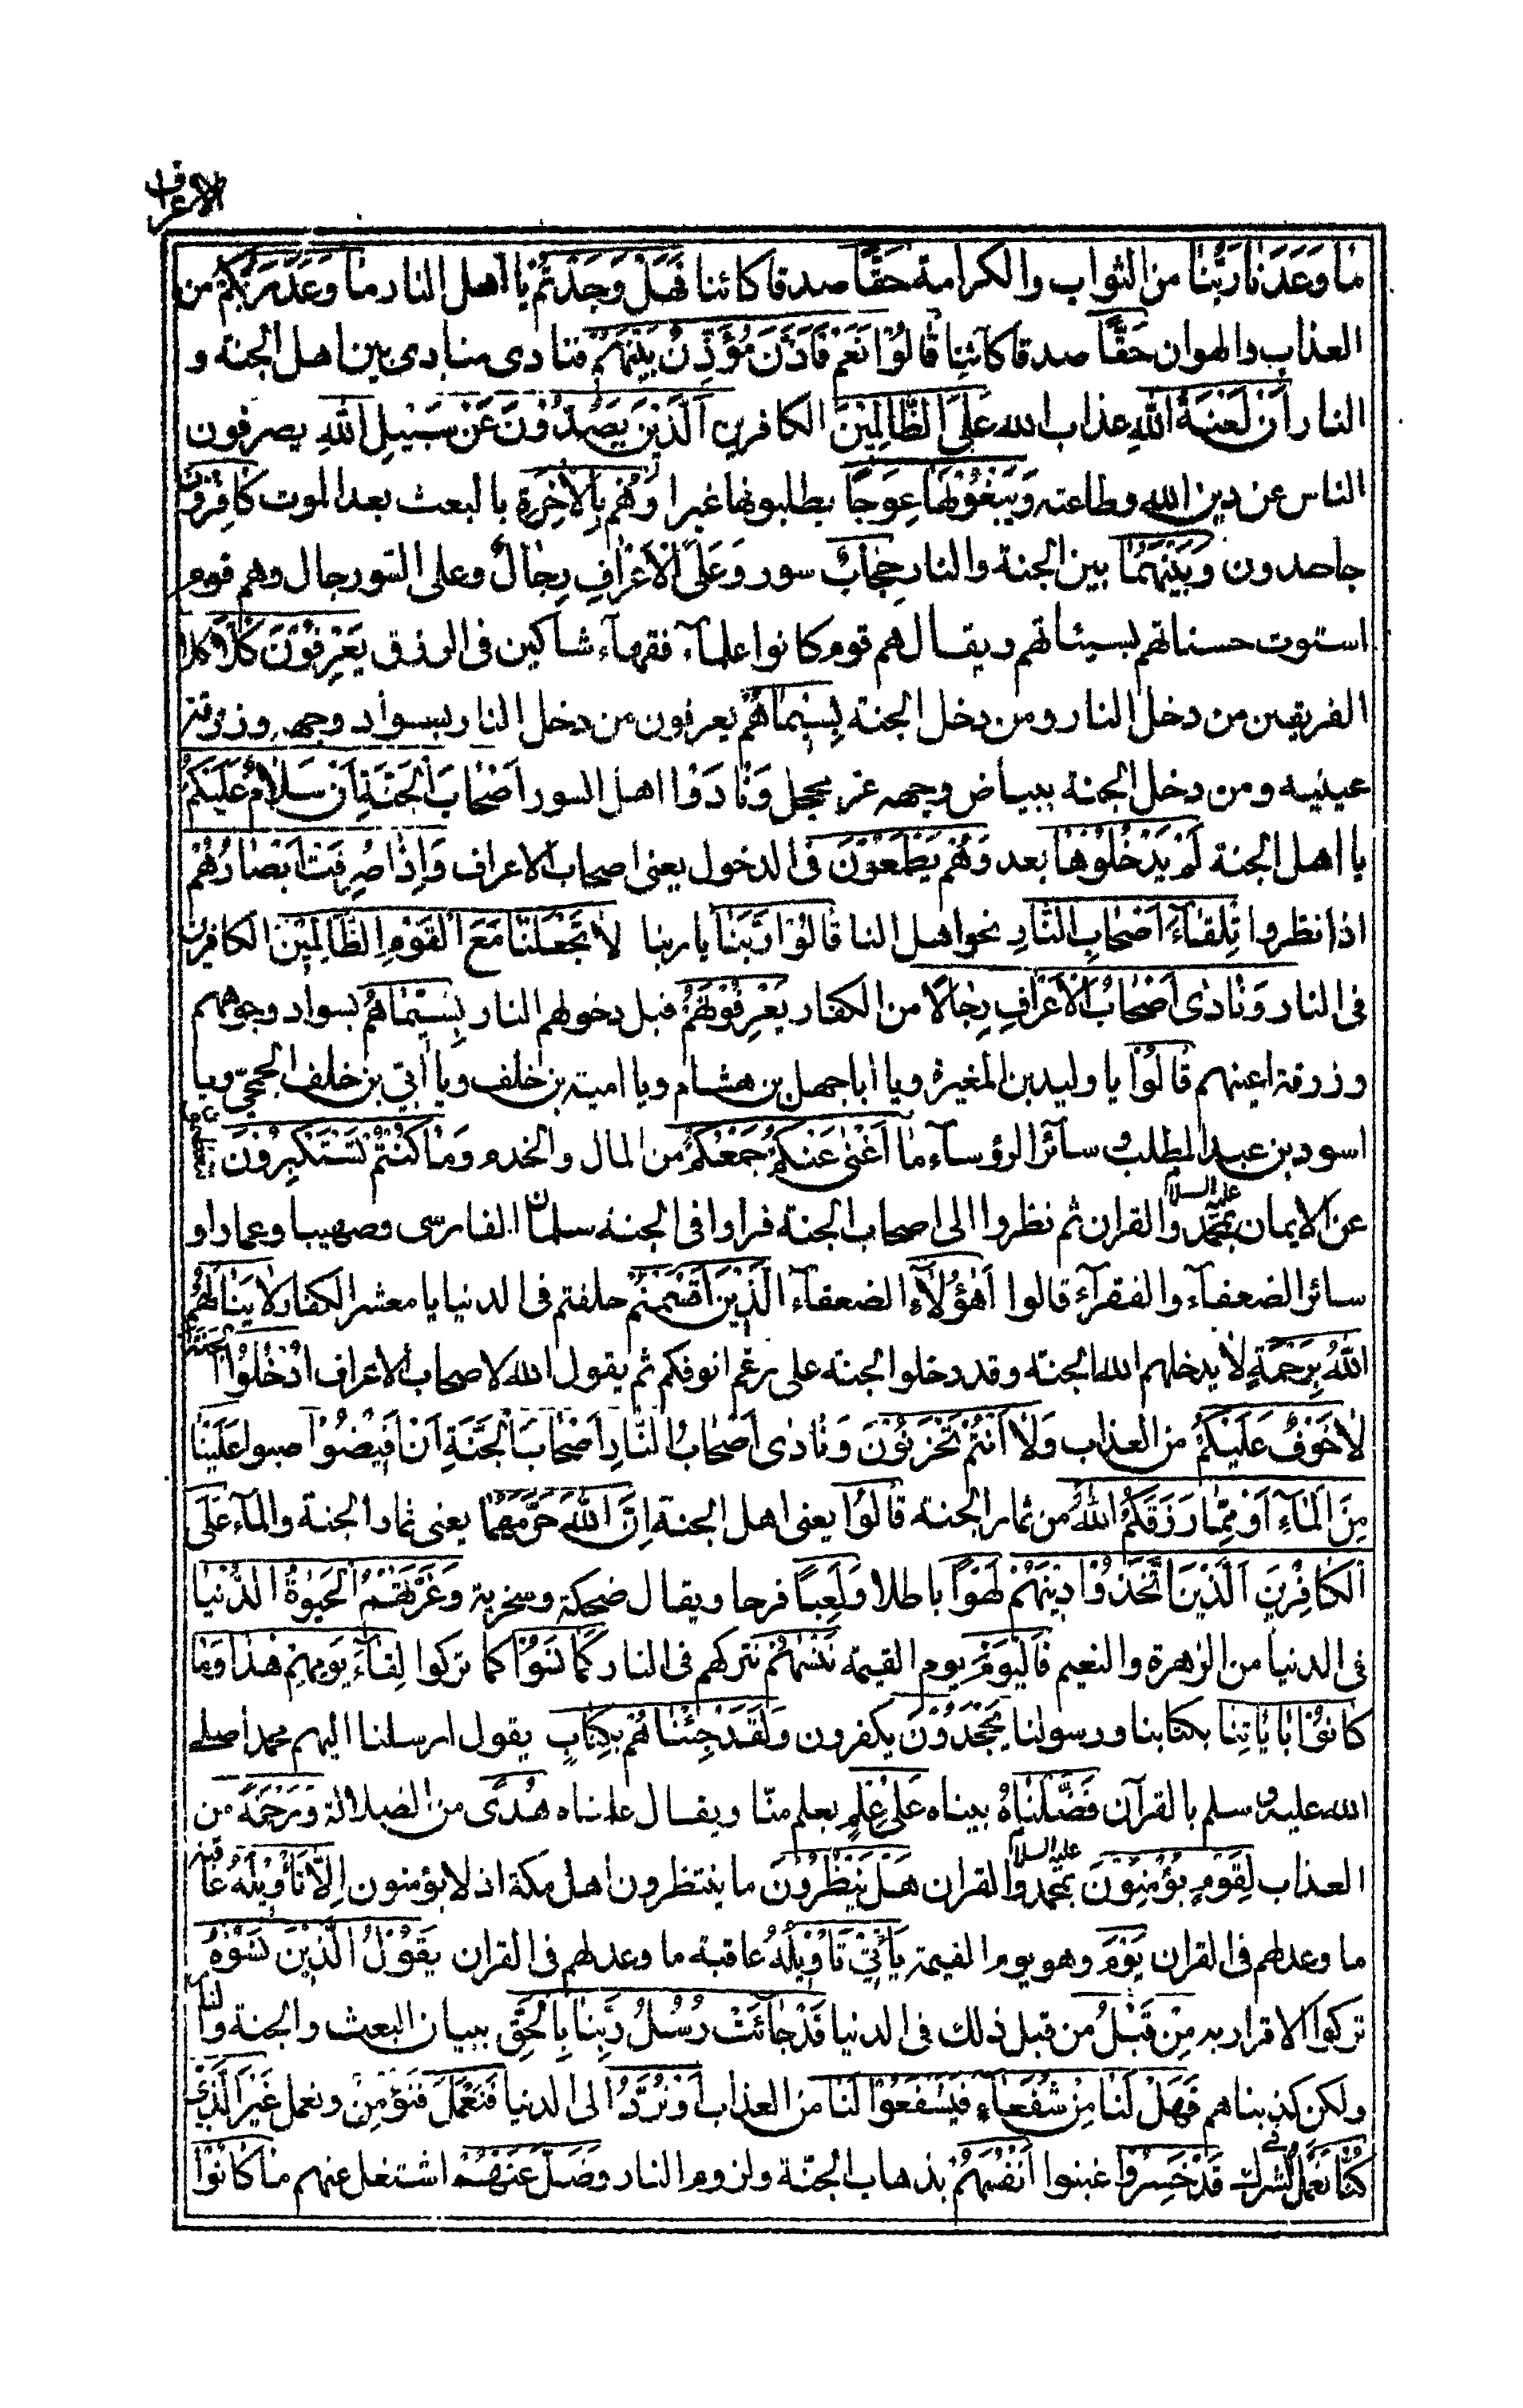 الاعراف
مَا وَعَدَنَا رَبُّنَا من الثواب والكرامة حَقًّا صدقا كائنا فَهَلْ وَجَدْتُمْ يا اهل النار مَا وَعَدَ رَبُّكُمْ من
العذاب والهوان حَقًّا صدقا كآئنا قَالُوْا نَعَمْ فَاَذَّنَ مُؤَذِّنٌ بَيْنَهُمْ فنادى منادى بين اهل الجنة و
النار اَنْ لَعْنَةُ اللّٰهِ عذاب الله عَلَى الظَّالِمِيْنَ الكافرين اَلَّذِيْنَ يَصُدُّوْنَ عَنْ سَبِيْلِ اللّٰهِ يصرفون
الناس عن دين الله وطاعته وَيَبْغُوْنَهَا عِوَجًا يطلبونها غيرا وَهُمْ بِالْاٰخِرَةِ بالبعث بعد الموت كَافِرُوْنَ
جاحدون وَبَيْنَهُمَا بين الجنة والنار حِجَابٌ سور وَعَلَى الْاَعْرَافِ رِجَالٌ وعلى السور رجال وهم قوم
استوت حسناتهم بسيئاتهم ويقال هم قوم كانوا علمآء فقهآء شاكين فى الرزق يَعْرِفُوْنَ كُلًّا كلا
الفريقين من دخل النار ومن دخل الجنة بِسِيْمَاهُمْ يعرفون من دخل النار بسواد وجهه وزرقة
عينيه ومن دخل الجنة ببياض وجهه غر محجل وَنَادَوْا اهل السور اَصْحَابَ الْجَنَّةِ اَنْ سَلَامٌ عَلَيْكُمْ
يا اهل الجنة لَمْ يَدْخُلُوْهَا بعد وَهُمْ يَطْمَعُوْنَ فى الدخول يعنى اصحاب الاعراف وَاِذَا صُرِفَتْ اَبْصَارُهُمْ
اذا نظروا تِلْقَآءَ اَصْحَابِ النَّارِ نحو اهل النا قَالُوْا رَبَّنَا يا ربنا لَا تَجْعَلْنَا مَعَ الْقَوْمِ الظَّالِمِيْنَ الكافرين
فى النار وَنَادٰى اَصْحَابُ الْاَعْرَافِ رِجَالًا من الكفار يَعْرِفُوْنَهُمْ قبل دخولهم النار بِسِيْمَاهُمْ بسواد وجوههم
وزرقة اعينهم قَالُوْا يا وليد بن المغيرة ويا ابا جهل بن هشام ويا امية بن خلف ويا ابي بن خلف الجمحي ويا
اسود بن عبد المطلب وسآئر الرؤسآء مَا اَغْنٰى عَنْكُمْ جَمْعُكُمْ من المال والخدم وَمَا كُنْتُمْ تَسْتَكْبِرُوْنَ
عن الايمان بمحمد عليه السلام والقران ثم نظروا الى اصحاب الجنة فراوا فى الجنة سلمان الفارسى وصهيبا وعمارا و
سائر الضعفآء والفقرآء قالوا اَهٰؤُلَآءِ الضعفآء الَّذِيْنَ اَقْسَمْتُمْ حلفتم فى الدنيا يا معشر الكفار لَا يَنَالُهُمُ
اللّٰهُ بِرَحْمَةٍ لا يدخلهم الله الجنة وقد دخلوا الجنة على رغم انوفكم ثم يقول الله لاصحاب الاعراف اُدْخُلُوا الْجَنَّةَ
لَا خَوْفٌ عَلَيْكُمْ من العذاب وَلَا اَنْتُمْ تَحْزَنُوْنَ وَنَادٰى اَصْحَابُ النَّارِ اَصْحَابَ الْجَنَّةِ اَنْ اَفِيْضُوْا صبوا عَلَيْنَا
مِنَ الْمَآءِ اَوْ مِمَّا رَزَقَكُمُ اللّٰهُ من ثمار الجنة قَالُوْا يعنى اهل الجنة اِنَّ اللّٰهَ حَرَّمَهُمَا يعنى ثمار الجنة والمآء عَلَى
الْكَافِرِيْنَ اَلَّذِيْنَ اتَّخَذُوْا دِيْنَهُمْ لَهْوًا باطلا وَلَعِبًا فرحا ويقال ضحكة وسخرية وَغَرَّتْهُمُ الْحَيٰوةُ الدُّنْيَا
فى الدنيا من الزهرة والنعيم فَالْيَوْمَ يوم القيمة نَنْسٰهُمْ نتركهم فى النار كَمَا نَسُوْا كما تركوا لِقَآءَ يَوْمِهِمْ هٰذَا وَمَا
كَانُوْا بِاٰيَاتِنَا بكتابنا ورسولنا يَجْحَدُوْنَ يكفرون وَلَقَدْ جِئْنَاهُمْ بِكِتَابٍ يقول ارسلنا اليهم محمدا صلى
الله عليه وسلم بالقرآن فَصَّلْنَاهُ بيناه عَلٰى عِلْمٍ بعلم منّا ويقال علمناه هُدًى من الضلالة وَرَحْمَةً من
العذاب لِقَوْمٍ يُؤْمِنُوْنَ بمحمد عليه السلام والقران هَلْ يَنْظُرُوْنَ ما ينتظرون اهل مكة اذ لا يؤمنون اِلَّا تَأْوِيْلَهُ عاقبة
ما وعدلهم فى القران يَوْمَ وهو يوم القيمة يَاْتِيْ تَاْوِيْلُهُ عاقبة ما وعدلهم فى القران يَقُوْلُ الَّذِيْنَ نَسُوْهُ
تركوا الاقرار به مِنْ قَبْلُ من قبل ذلك فى الدنيا قَدْ جَآئَتْ رُسُلُ رَبِّنَا بِالْحَقِّ ببيان البعث والجنة والنار
ولكن كذبناهم فَهَلْ لَنَا مِنْ شُفَعَآءَ فَيَشْفَعُوْا لَنَا من العذاب اَوْ نُرَدُّ الى الدنيا فَنَعْمَلَ فنؤمن ونعمل غَيْرَ الَّذِىْ
كُنَّا نَعْمَلُ فى الشرك قَدْ خَسِرُوْا غبنوا اَنْفُسَهُمْ بذهاب الجنّة ولزوم النار وَضَلَّ عَنْهُمْ اشتغل عنهم مَا كَانُوْا